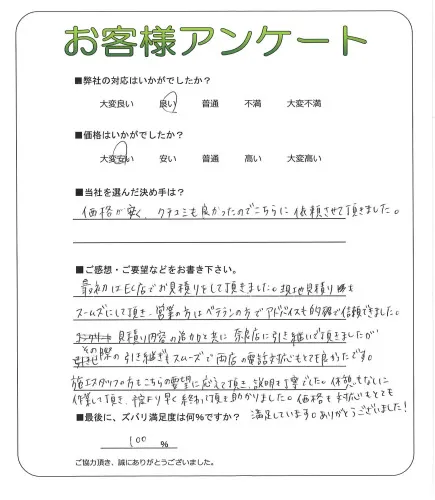 お客様アンケート
■弊社の対応はいかがでしたか？
大変良い 良い 普通 不満 大変不満
■価格はいかがでしたか？
大変安い 安い 普通 高い 大変高い
■当社を選んだ決め手は？
価格が安く、クチコミも良かったのでこちらに依頼させて頂きました。
■ご感想・ご要望などをお書き下さい。
最初はEC店でお見積りをして頂きました。現地見積り
スムーズにして頂き、営業の方はベテランの方でアドバイスも的確で信頼できました。
見積り内容の追加と共に奈良店に引き継いで頂きましたが
その際の引き継ぎもスムーズで両店の電話対応もとても良かったです。
施工スタッフの方もこちらの要望に応えて頂き、説明も丁寧でした。休憩もなしに
作業して頂き、予定より早く終わって頂き助かりました。価格も対応もとても
満足しています。ありがとうございました！
■最後に、ズバリ満足度は何％ですか？
100 ％
ご協力頂き、誠にありがとうございました。